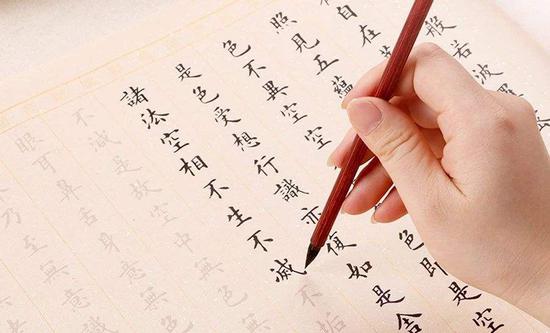 般若波羅
自在菩
照見五蘊
色不異空空色即是空
是色受想行識亦復如是舍
諸法空相不生不滅不垢
不減是故空中無色無
眼耳鼻舌身意無
乃至無意識